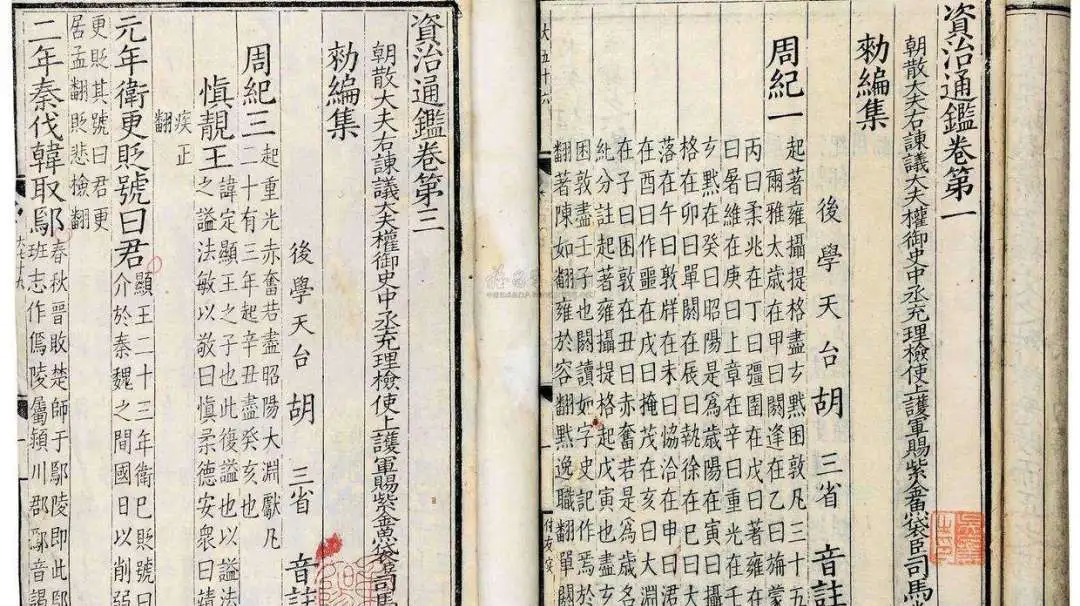 資治通鑑卷第一
朝散大夫右諫議大夫權御史中丞充理檢使上護軍賜紫金魚袋臣司馬
勑編集
後學天台胡三省音註
周紀一
起著雍攝提格盡玄黓困敦凡三十五
爾雅太歲在甲曰閼逢在乙曰旃蒙
丙曰柔兆在丁曰彊圉在戊曰著雍
曰屠維在庚曰上章在辛曰重光在
玄黓在癸曰昭陽是爲歲陽在寅曰
格在卯曰單閼在辰曰執徐在巳曰大
落在午曰敦牂在未曰協洽在申曰涒
在酉曰作噩在戌曰掩茂在亥曰大
在子曰困敦在丑曰赤奮若是爲歲
分註起著雍攝提格起戊寅也歲
困敦盡壬子也閼讀如字史記作焉於
翻著陳如翻雍於容翻黓逸職翻單閼
資治通鑑卷第三
朝散大夫右諫議大夫權御史中丞充理檢使上護軍賜紫金魚袋臣司馬
勑編集
後學天台胡三省音註
周紀三
起重光赤奮若盡昭陽大淵獻凡
二十有三年起辛丑盡癸亥也
慎靚王
諱定顯王之子也此復謚也以謚法
之謚法敏以敬曰慎柔德安衆曰靖
疾正
翻
元年衛更貶號曰君
顯王二十三年衛已貶號曰
介於秦魏之間國日以削弱
更貶其號曰君更
居孟翻貶悲檢翻
二年秦伐韓取鄢
春秋晉敗楚師于鄢陵即此鄢
班志作傿陵屬潁川郡鄢音謁